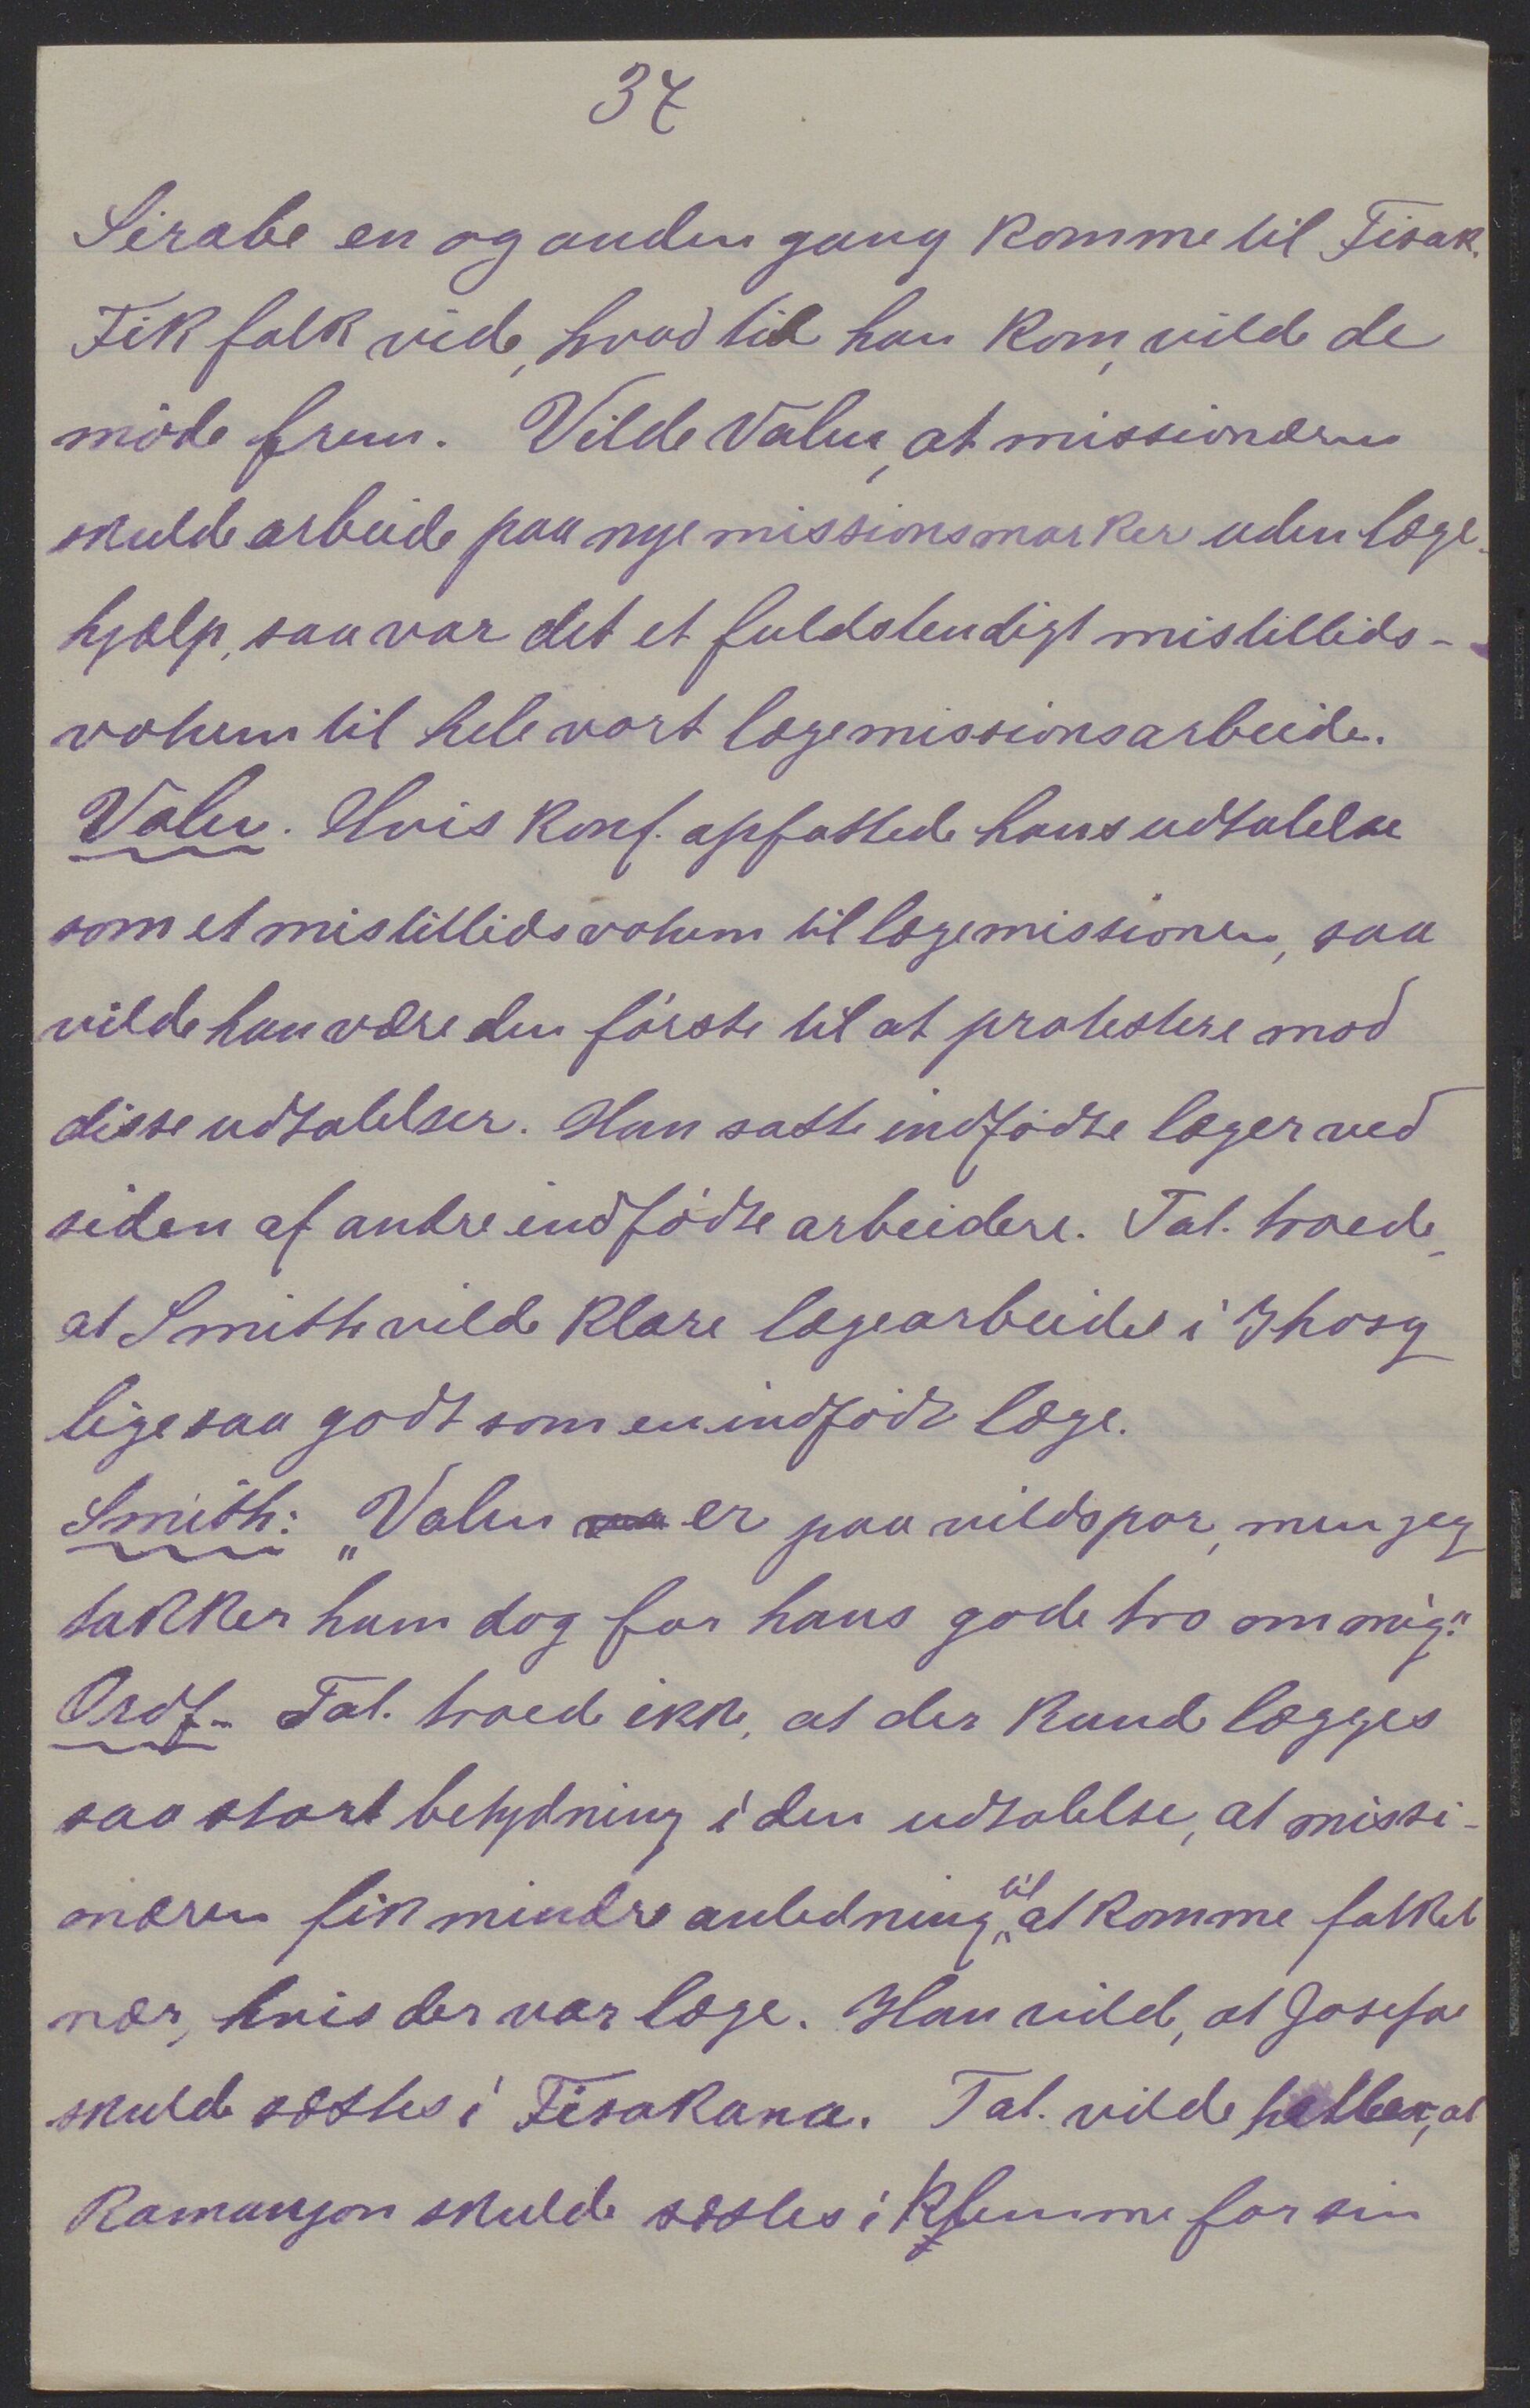 37
Sirabe en og anden gang komme til Fisak.
Fik folk vide, hvad tid han kom, vilde de
møde frem. Vilde Valen, at missionæren
skulde arbeide paa nye missionsmarker uden læge-
hjælp, saa var det et fuldstendigt mistillids-
votum til hele vort lægemissionsarbeide.
Valen. Hvis konf. opfattede hans udtalelse
som et mistillidsvotum til lægemissionen, saa
vilde han være den første til at protestere mod
disse udtalelser. Han satte indfødte læger ved
siden af andre indfødte arbeidere. Tal. troede,
at Smith vilde klare lægearbeidet i Ihosy
ligesaa godt som en indfødt læge.
Smith: "Valen er paa vildspor, men jeg
takker ham dog for hans gode tro om mig."
Ordf. Tal. troede ikke, at der kunde lægges
saa stort betydning i den udtalelse, at missi-
onæren fik mindre anledning til at komme folket
nær, hvis der var læge. Han vilde, at Josefa
skulde sættes i Fisakana. Tal. vilde heller, at
Ramanjon skulde sættes i klemme for sin